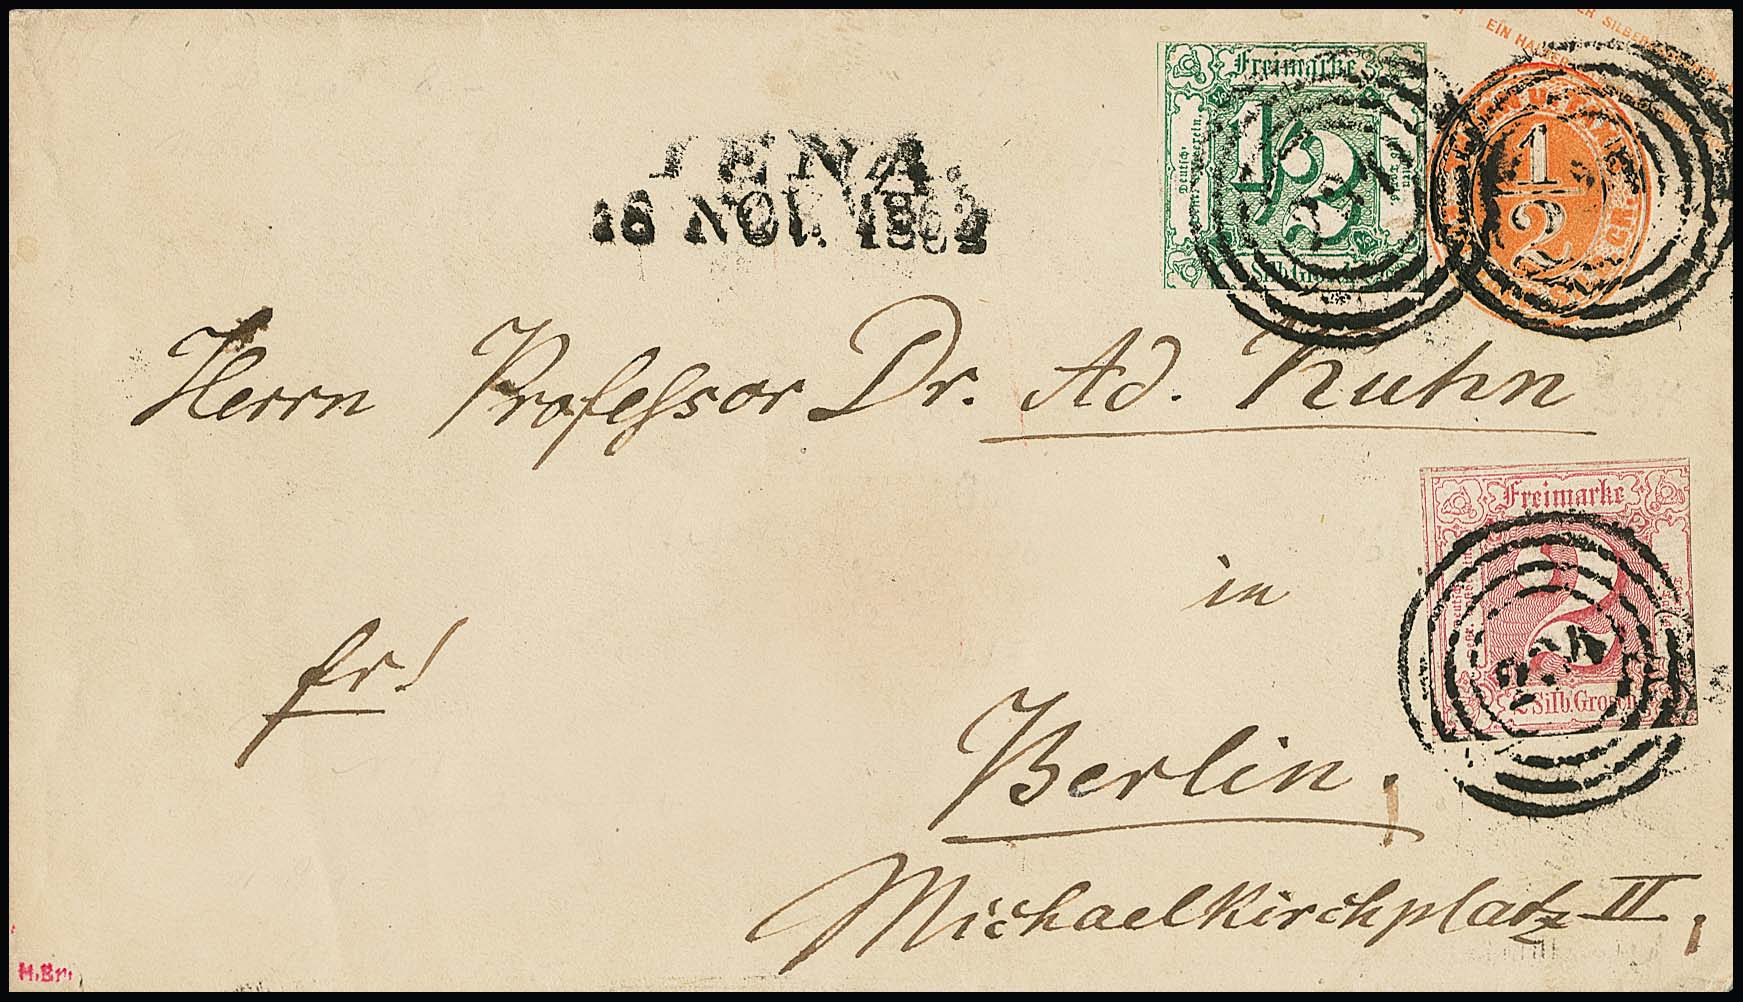 EIN HALBER SILBERGROSCHEN
Freimarke
1/2
Deutsch.
Silb. Grosch.
1/2
JENA.
16 NOV. 1862
Herrn Professor Dr. Ad. Kuhn
Freimarke
2
2 Silb. Grosch.
in
fr!
Berlin.
Michaelkirchplatz II.
H.Br.